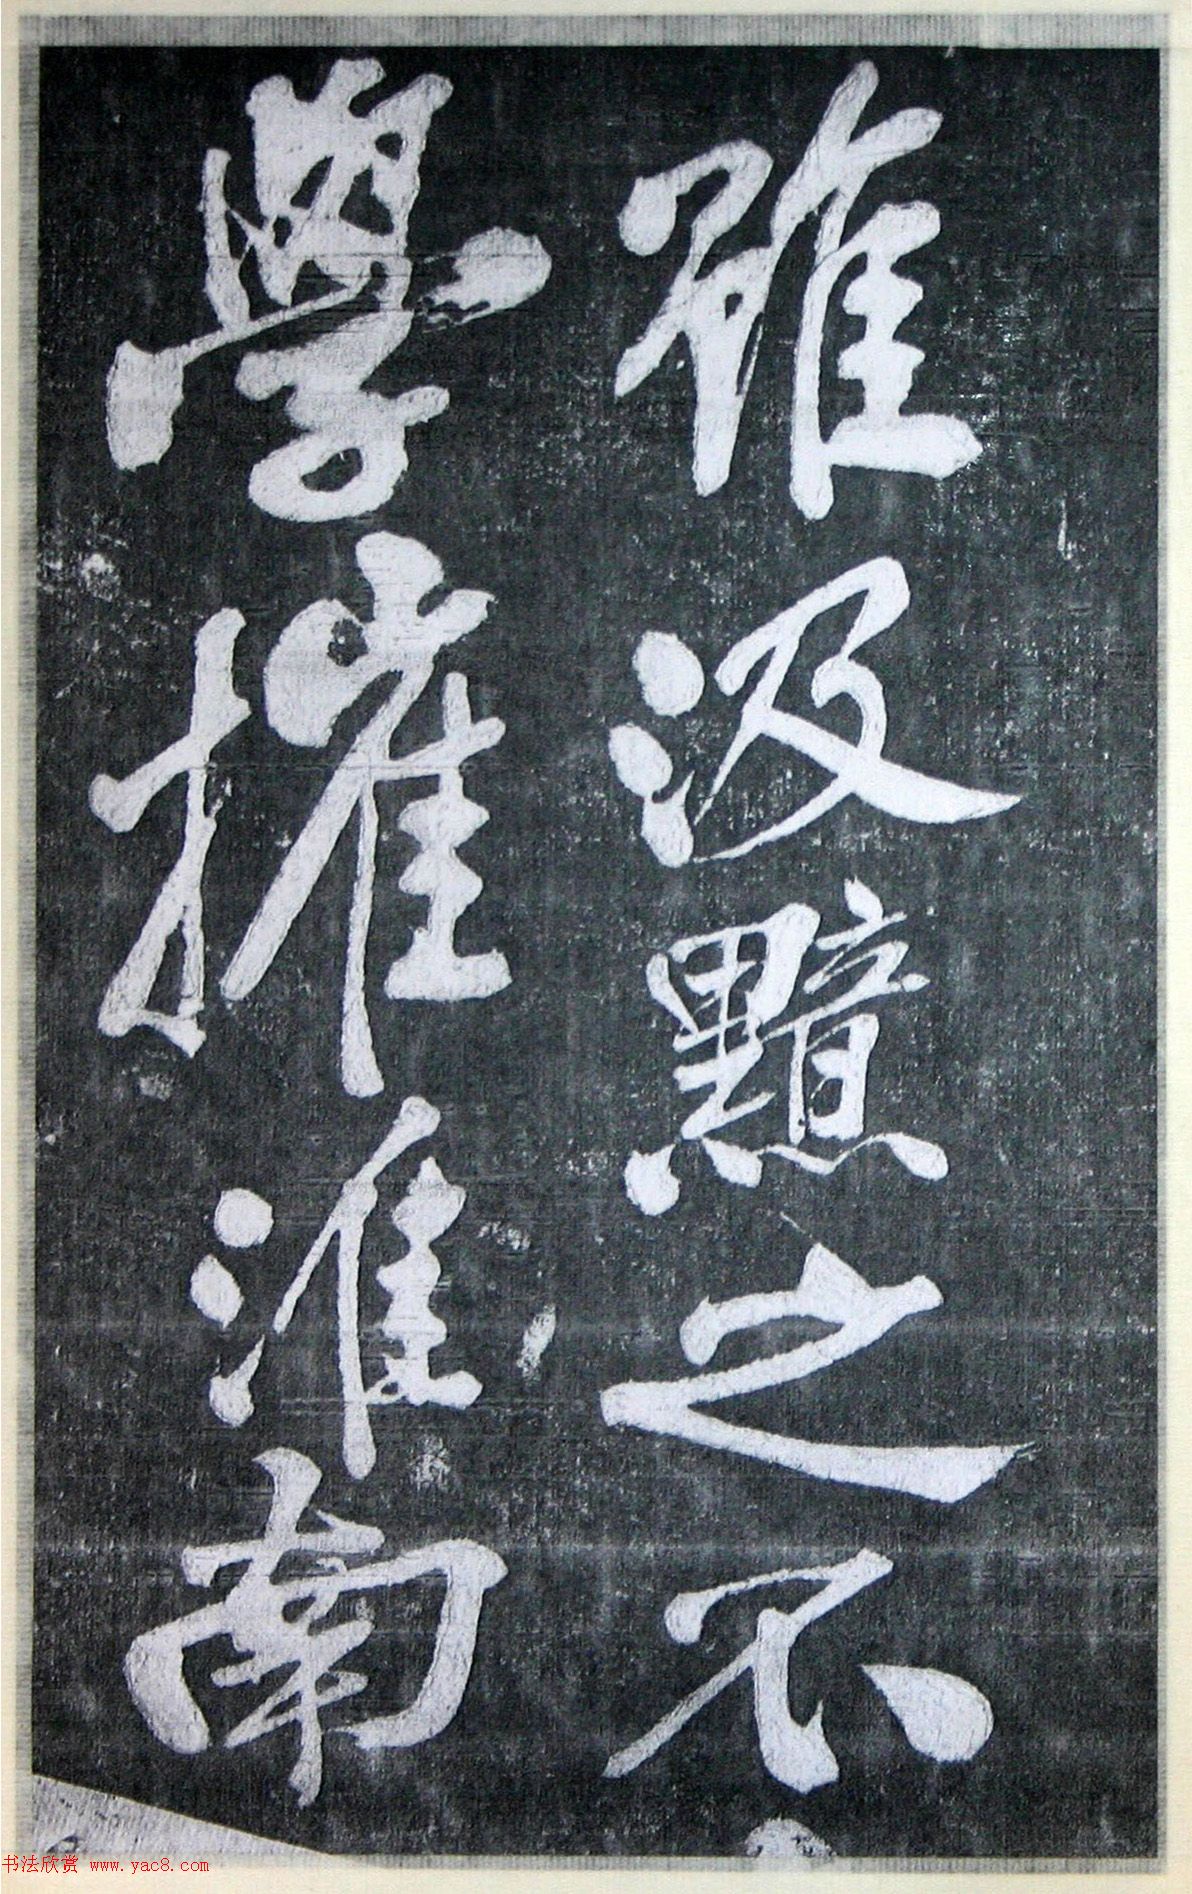 雖汲黯之不
學摧淮南
书法欣赏 www.yac8.com